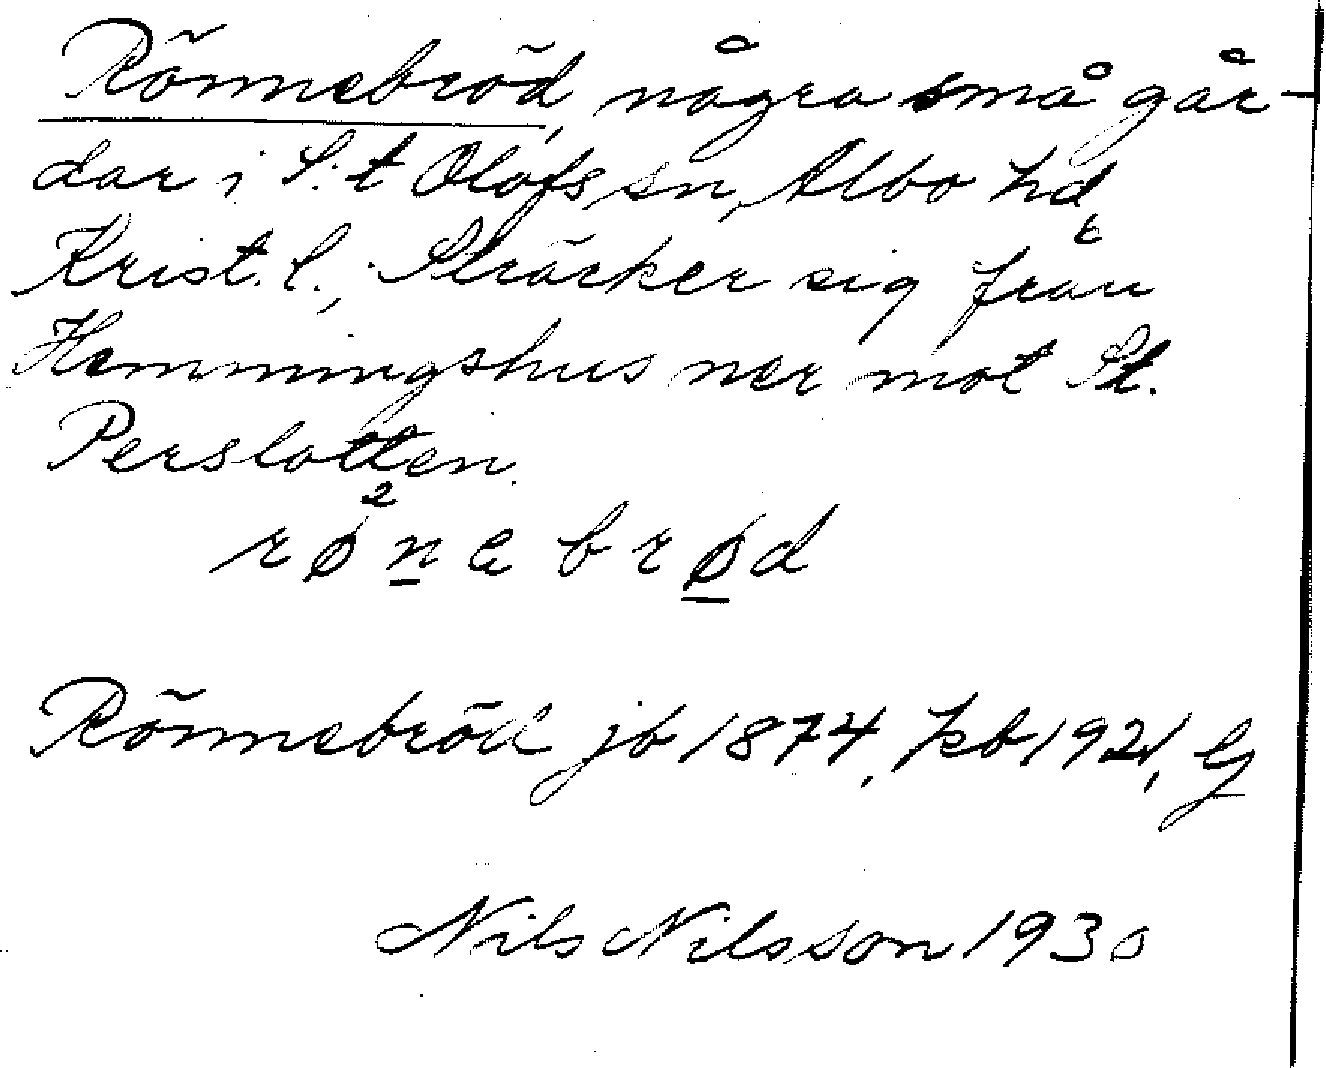 Rönnebröd, några små går-
dar i S:t Olofs sn, Albo hd,
Krist. l., Sträcker sig från
Hemmingshus ner mot St.
Perslotten.
rø²nebrød
Rönnebröd jb 1874, kb 1921, G
Nils Nilsson 1930